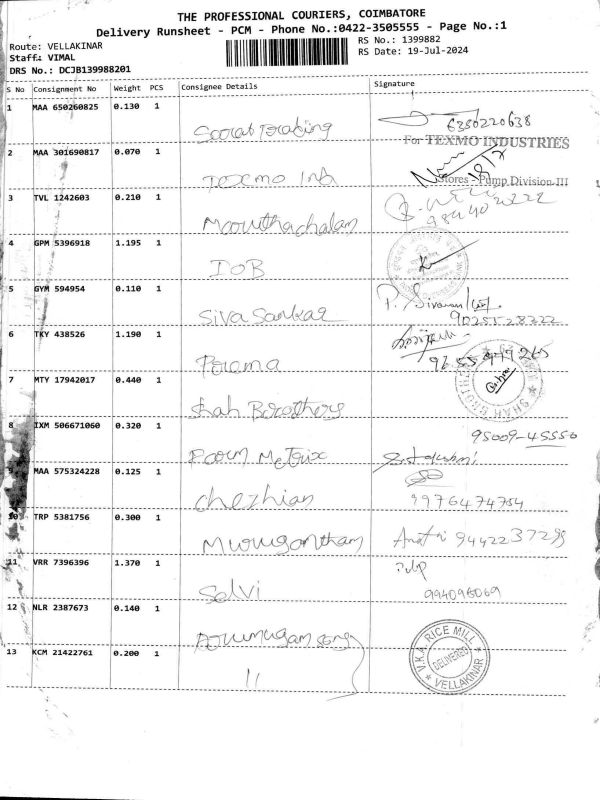 THE PROFESSIONAL COURIERS, COIMBATORE
Delivery Runsheet - PCM - Phone No.:0422-3505555 - Page No.:1
Route: VELLAKINAR
Staff: VIMAL
DRS No.: DCJB139988201
RS No.: 1399882
RS Date: 19-Jul-2024
S No Consignment No Weight PCS Consignee Details Signature
1 MAA 650260825 0.130 1 6380220638
For TEXMO INDUSTRIES
2 MAA 301690817 0.070 1 Texmo Ind 18/7
Stores - Pump Division III
3 TVL 1242603 0.210 1 Moouthachalam
4 GPM 5396918 1.195 1 IOB
5 GYM 594954 0.110 1 Siva Sankar P. Sivaram
9025528222
6 TKY 438526 1.190 1 Porema
7 MTY 17942017 0.440 1 Shah Borothers
SHAH BROTHERS
8 IXM 506671060 0.320 1 95009-45550
9 MAA 575324228 0.125 1 Chezhian
9976474754
10 TRP 5381756 0.300 1 Murugantham
11 VRR 7396396 1.370 1 Selvi
12 NLR 2387673 0.140 1
13 KCM 21422761 0.200 1 11
V.K.A. RICE MILL
DELIVERED
VELLAKINAR